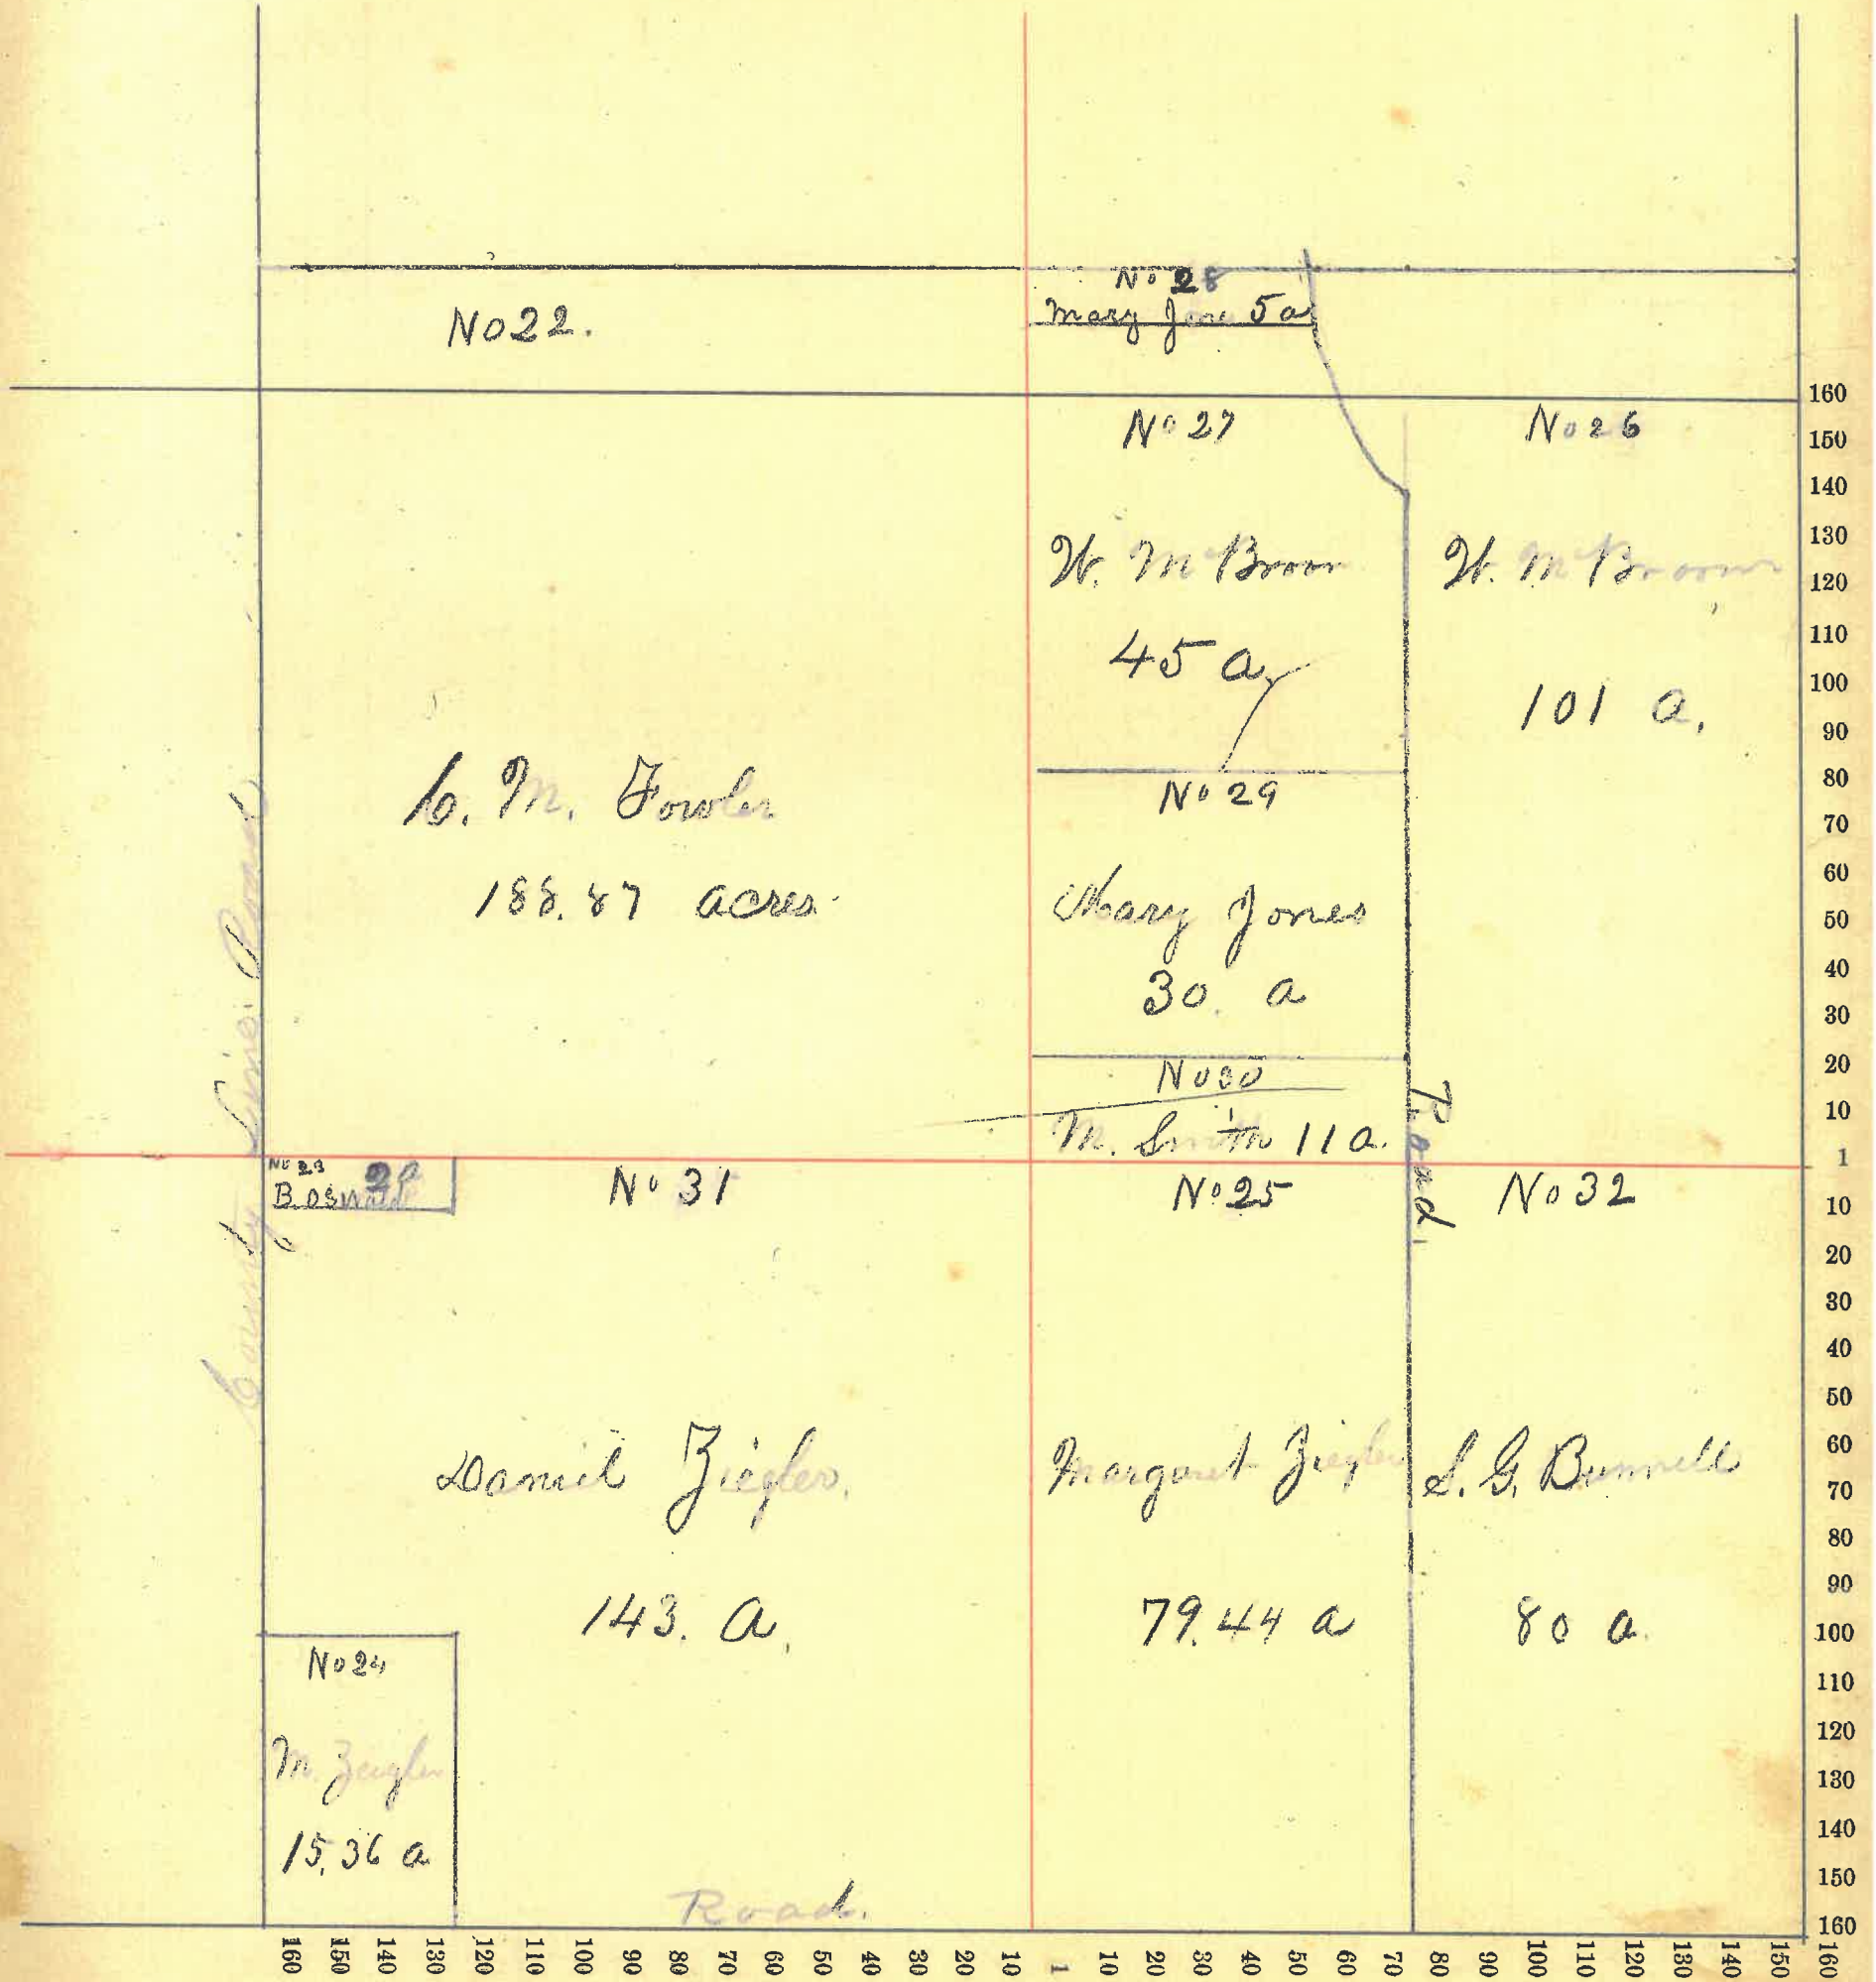 No 28
Mary Jone 5a
No 22.
No 27
No 26
W. McBroom
45 a
W. McBroom
101 a.
C. M. Fowler
188.87 acres.
No 29
Mary Jones
30. a
No 30
M. Smith 11 a.
County Line Road
Road.
No 23
2a
No 31
No 25
No 32
Daniel Ziegler.
143. a.
Margaret Ziegler
79.44 a
S. G. Bunnell
80 a.
No 24
M. Zeigler
15.36 a
Road.
160
150
140
130
120
110
100
90
80
70
60
50
40
30
20
10
1
10
20
30
40
50
60
70
80
90
100
110
120
130
140
150
160
160 150 140 130 120 110 100 90 80 70 60 50 40 30 20 10 1 10 20 30 40 50 60 70 80 90 100 110 120 130 140 150 160